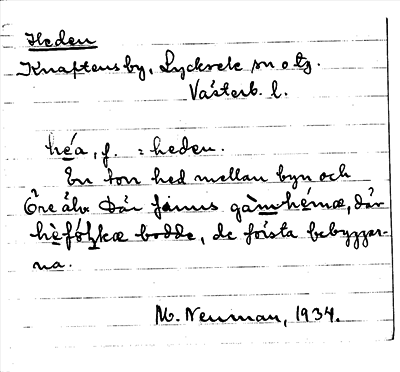 Heden
Knaftens by, Lycksele sn o tg.
Västerb. l.
héa, f. = heden.
En torr hed mellan byn och
Öre älv. Där finns gàmhémæ, där
hèfóḷkæ bodde, de första bebyggar-
na.
M. Neuman, 1934.